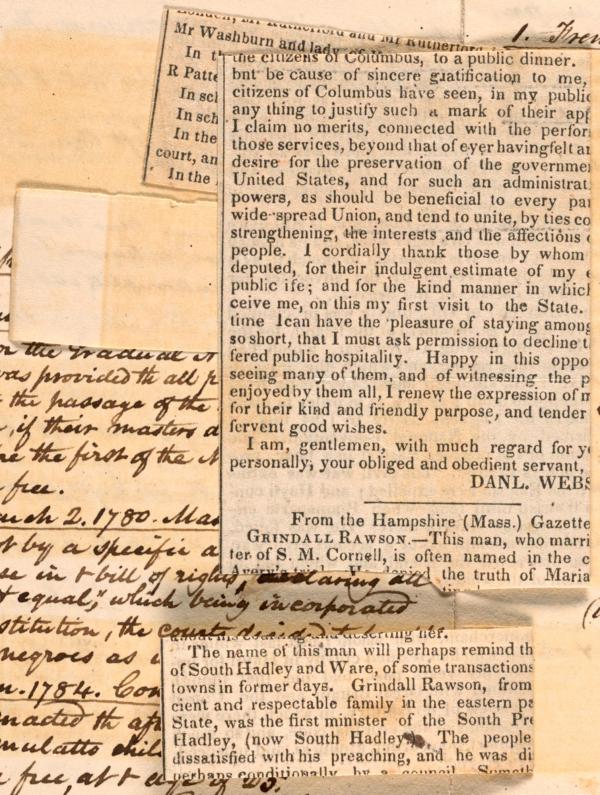 London, Mr Rutherford and Mr Rutherford,
Mr Washburn and lady of
In t
R Patte
In sch
In sch
In the
court, an
In the
1. Fren
the citizens of Columbus, to a public dinner.
but be cause of sincere gratification to me,
citizens of Columbus have seen, in my public
any thing to justify such a mark of their app
I claim no merits, connected with the perfor
those services, beyond that of ever havingfelt an
desire for the preservation of the governme
United States, and for such an administrat
powers, as should be beneficial to every par
wide-spread Union, and tend to unite, by ties co
strengthening, the interests and the affections o
people. I cordially thank those by whom
deputed, for their indulgent estimate of my e
public ife; and for the kind manner in which
ceive me, on this my first visit to the State.
time Ican have the pleasure of staying among
so short, that I must ask permission to decline t
fered public hospitality. Happy in this oppo
seeing many of them, and of witnessing the p
enjoyed by them all, I renew the expression of m
for their kind and friendly purpose, and tender
fervent good wishes.
I am, gentlemen, with much regard for yo
personally, your obliged and obedient servant,
DANL. WEBS
From the Hampshire (Mass.) Gazette
GRINDALL RAWSON.—This man, who marri
ter of S. M. Cornell, is often named in the c
Avery's trial. He denied the truth of Maria
deserting her.
The name of this man will perhaps remind th
of South Hadley and Ware, of some transactions
towns in former days. Grindall Rawson, from
cient and respectable family in the eastern pa
State, was the first minister of the South Pre
Hadley, (now South Hadley). The people
dissatisfied with his preaching, and he was di
perhaps conditionally, by a council. Someth
or the Gradual A
was provided th all p
the passage of the
, if their masters d
re the first of the N
free.
arch 2. 1780. Mas
ot by a specific a
se in & bill of rights, declaring all
& equal," which being incorporated
stitution, the courts decided th
negroes as
n. 1784. Con
nacted th aft
mulatto chil
free, at & age of 25.